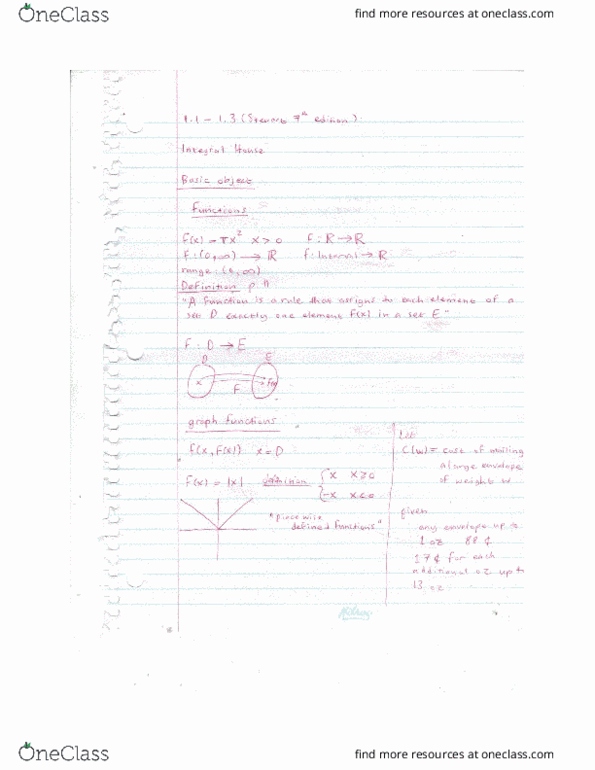 OneClass
find more resources at oneclass.com
1.1 - 1.3 (Stewarts 7th edition)
Integral House
Basic object
Functions
f(x) = πx² x>0 f: ℝ→ℝ
f: (0,∞) → ℝ f: Interval → ℝ
range: (0,∞)
Definition p
"A function is a rule that assigns to each element of a
set D exactly one element f(x) in a set E"
f: D → E
D E
x f f(x)
graph functions
f(x, f(x)) x = D
f(x) = |x| definition { x x≥0
-x x<0
"piecewise
defined functions"
C(w) = cost of mailing
a large envelope
of weight w
given
any envelope up to
1 oz 88 ¢
17 ¢ for each
additional oz up to
13 oz
OneClass
find more resources at oneclass.com